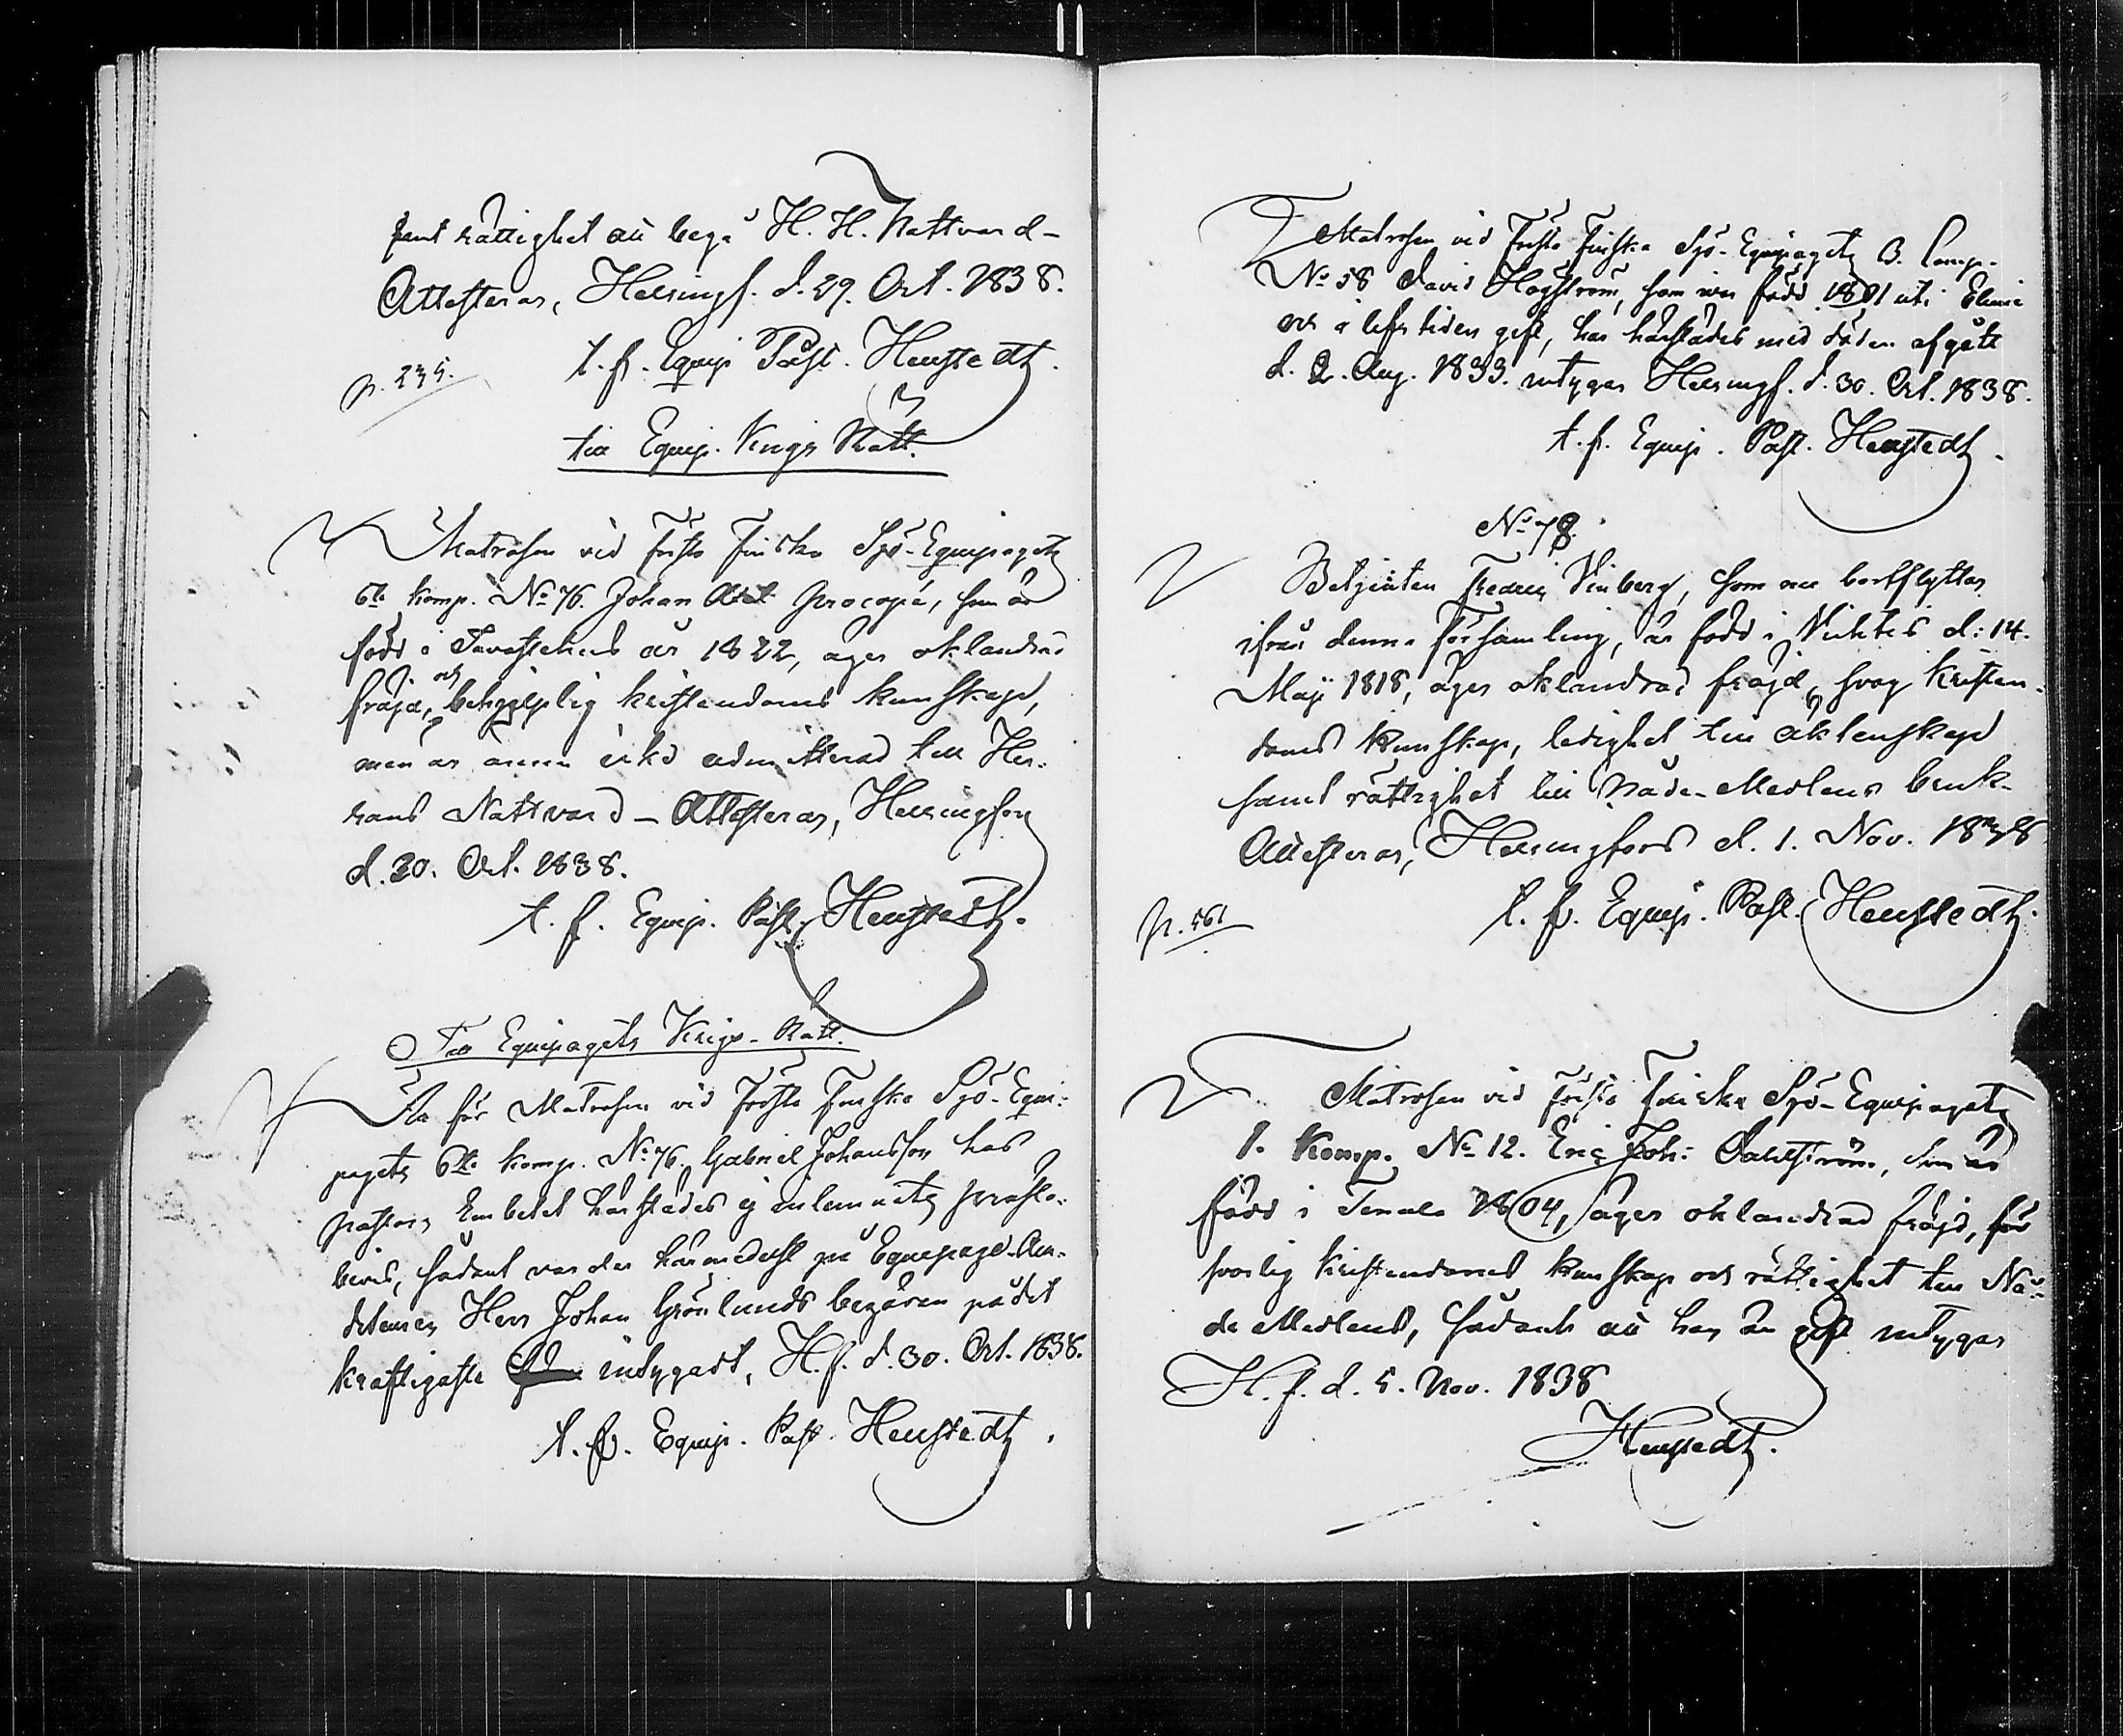 samt rättighet att begå H. H. Nattvard –
Attesteras, Helsingf. d. 29. Oct. 1838.
t. f. Equip Past. Henstedt.
p. 235.
Till Equip. Krigs Rätt.
Matrosen vid Första Finska Sjö-Equipaget
6te Komp. No 76. Johan Procopé, som är
född i Tavastehus år 1822, äger oklandrad
fräjd, och behjelplig kristendoms kunskap,
men är ännu icke admitterad till Her-
rans Nattvard – Attesteras, Helsingfors
d. 30. Oct. 1838.
t. f. Equip. Past. Henstedt.
Till Equipagets Krigs-Rätt.
Att för Matrosen vid Första Finska Sjö-Equi-
pagets 6te Komp. No 76. Gabriel Johansson har
Pastors Embetet härstädes ej inlemnats prästa-
bevis, sådant varder härmedelst på Equipage-Au-
diteuren Herr Johan Grönlunds begäran på det
kraftigaste intygadt, H. f. d. 30. Oct. 1838.
t. f. Equip. Past. Henstedt.
Matrosen vid Första Finska Sjö-Equipaget 3. Comp.
No 58 David Hagström, som var född 1801 uti Elimä
och i lifstiden gift, har härstädes med döden afgått
d. 2. Aug. 1833. intygar Helsingf. d. 30. Oct. 1838.
t. f. Equip. Past. Henstedt.
No 78.
Betjenten Fredric Vinberg, som nu bortflyttar
ifrån denna Församling, är född i Vichtis d: 14.
Maji 1818, äger oklandrad fräjd, svag Kristen-
doms Kunskap, ledighet till äktenskap
samt rättighet till Nåde-Medlens bruk –
Attesteras, Helsingfors d. 1. Nov. 1838
t. f. Equip. Past. Henstedt.
p. 561
Matrosen vid Första Finska Sjö-Equipaget
1. Komp. No 12. Eric Joh: Dahlström, som är
född i Tenala 1804, äger oklandrad fräjd, för
svarlig Kristendoms Kunskap och rättighet till Nå-
de Medlens, sådant att han är gift intygar
H. f. d. 5. Nov. 1838
Henstedt.